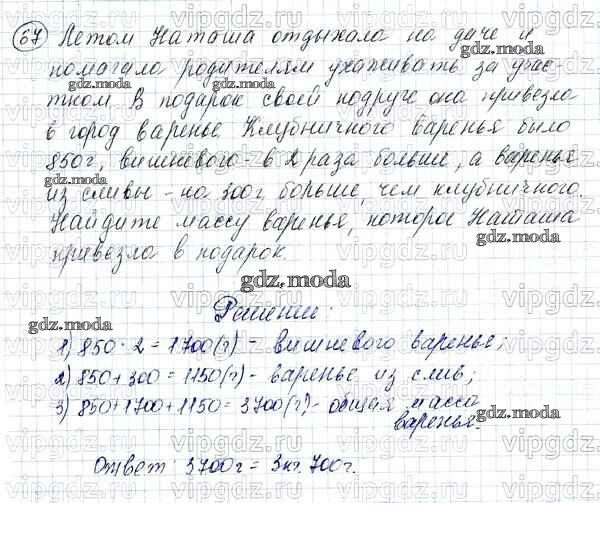 67 Летом Наташа отдыхала на даче и
помогала родителям ухаживать за учас-
тком. В подарок своей подруге она привезла
в город варенье. Клубничного варенья было
850г, вишневого - в 2 раза больше, а варенье
из сливы - на 300г. больше, чем клубничного.
Найдите массу варенья, которое Наташа
привезла в подарок.
Решение:
1) 850 · 2 = 1700(г) - вишневого варенье;
2) 850 + 300 = 1150(г) - варенье из слив;
3) 850 + 1700 + 1150 = 3700(г) - общая масса
варенья.
Ответ 3700г = 3кг. 700г.
gdz.moda
vipgdz.com